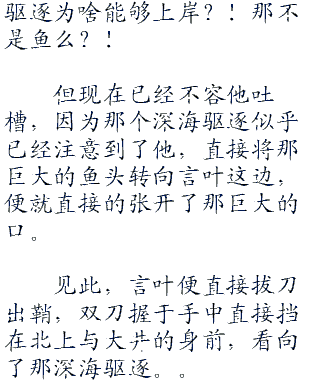 驱逐为啥能够上岸？！那不
是鱼么？！
但现在已经不容他吐
槽，因为那个深海驱逐似乎
已经注意到了他，直接将那
巨大的鱼头转向言叶这边，
便就直接的张开了那巨大的
口。
见此，言叶便直接拔刀
出鞘，双刀握于手中直接挡
在北上与大井的身前，看向
了那深海驱逐。。